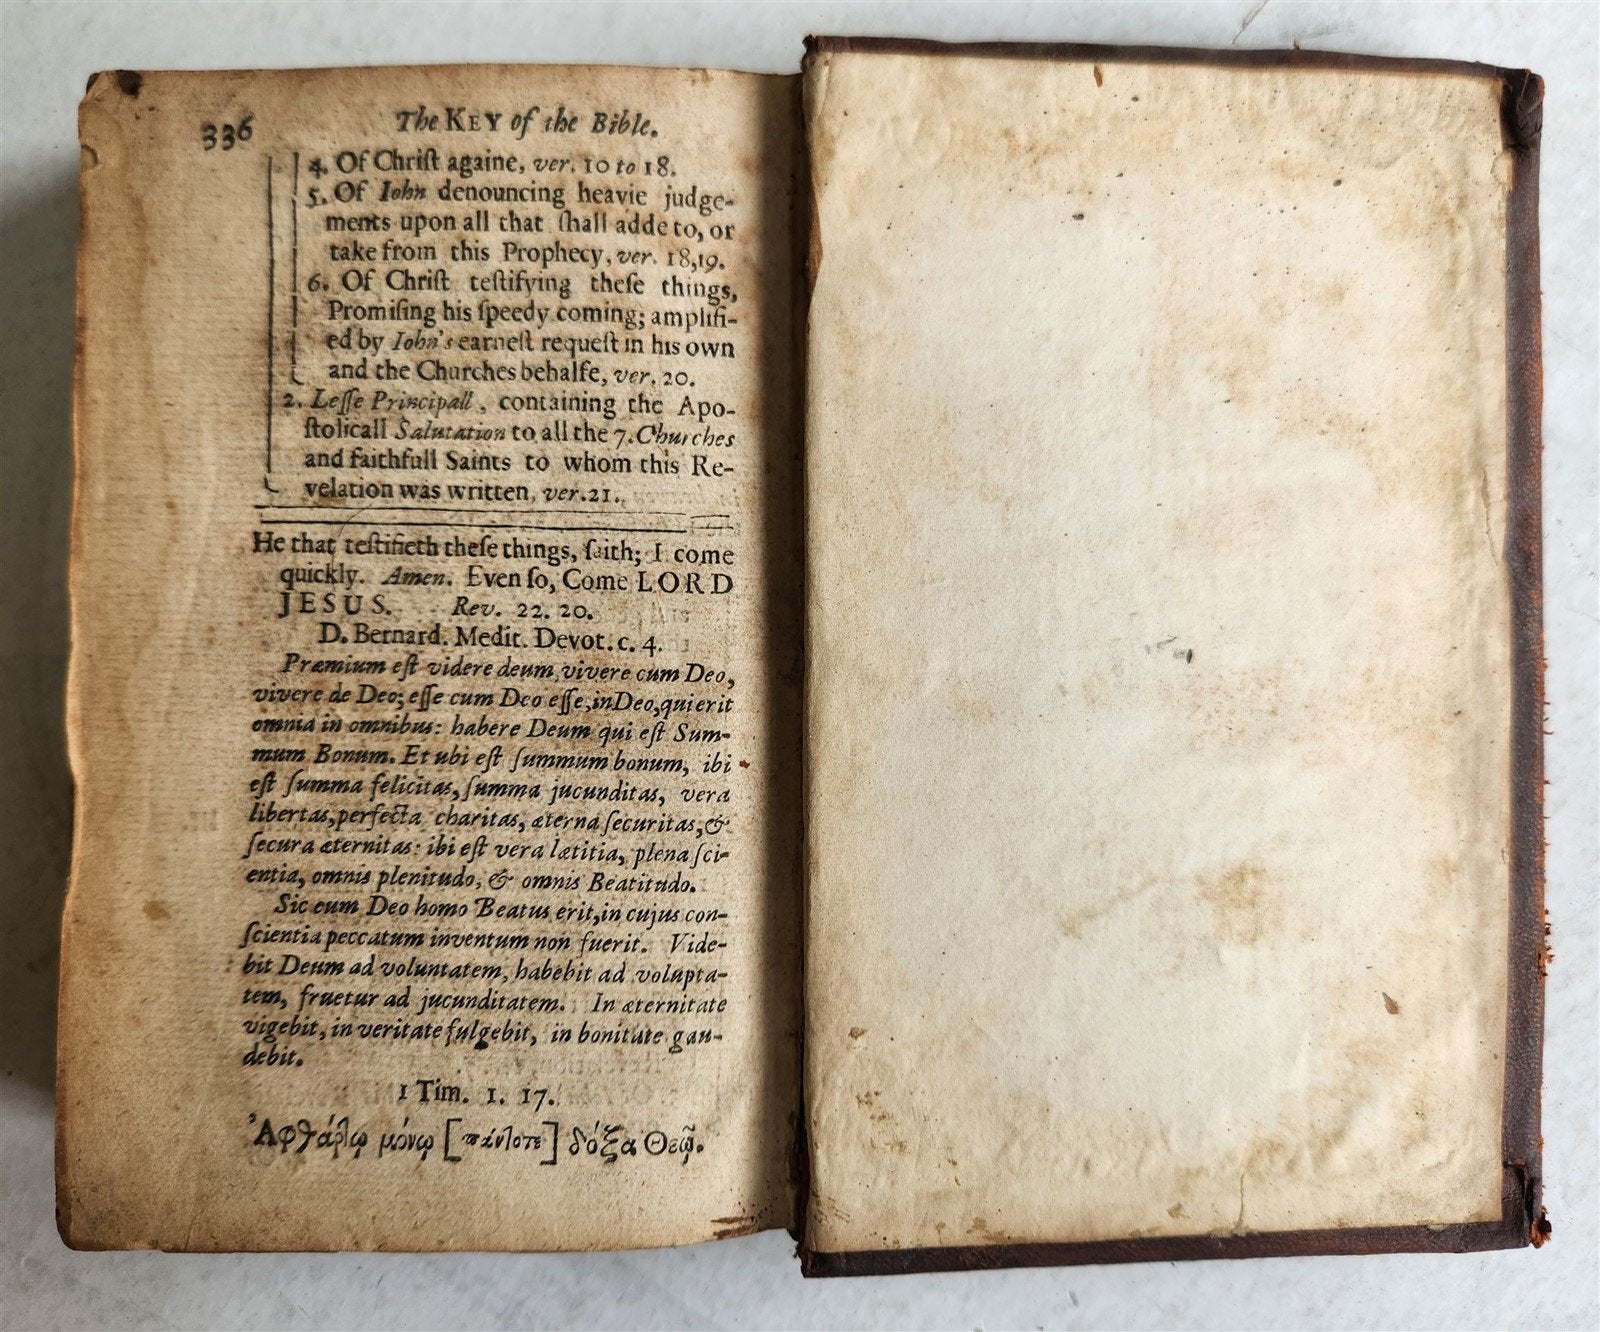 336
The KEY of the Bible.
4. Of Chriſt againe, ver. 10 to 18.
5. Of Iohn denouncing heavie judge-
ments upon all that ſhall adde to, or
take from this Prophecy, ver. 18,19.
6. Of Chriſt teſtifying theſe things,
Promiſing his ſpeedy coming; amplifi-
ed by Iohn's earneſt requeſt in his own
and the Churches behalfe, ver. 20.
2. Leſſe Principall, containing the Apo-
ſtolicall Salutation to all the 7. Churches
and faithfull Saints to whom this Re-
velation was written, ver. 21.
He that teſtifieth theſe things, ſaith; I come
quickly. Amen. Even ſo, Come LORD
JESUS. Rev. 22. 20.
D. Bernard. Medit. Devot. c. 4.
Præmium eſt videre deum, vivere cum Deo,
vivere de Deo; eſſe cum Deo eſſe, in Deo, qui erit
omnia in omnibus: habere Deum qui eſt Sum-
mum Bonum. Et ubi eſt ſummum bonum, ibi
eſt ſumma felicitas, ſumma jucunditas, vera
libertas, perfecta charitas, æterna ſecuritas, &
ſecura æternitas: ibi eſt vera lætitia, plena ſci-
entia, omnis plenitudo, & omnis Beatitudo.
Sic cum Deo homo Beatus erit, in cujus con-
ſcientia peccatum inventum non fuerit. Vide-
bit Deum ad voluntatem, habebit ad volupta-
tem, fruetur ad jucunditatem. In æternitate
vigebit, in veritate fulgebit, in bonitate gau-
debit.
1 Tim. 1. 17.
Ἀφθάρτῳ μόνῳ [πάντοτε] δόξα Θεῷ.